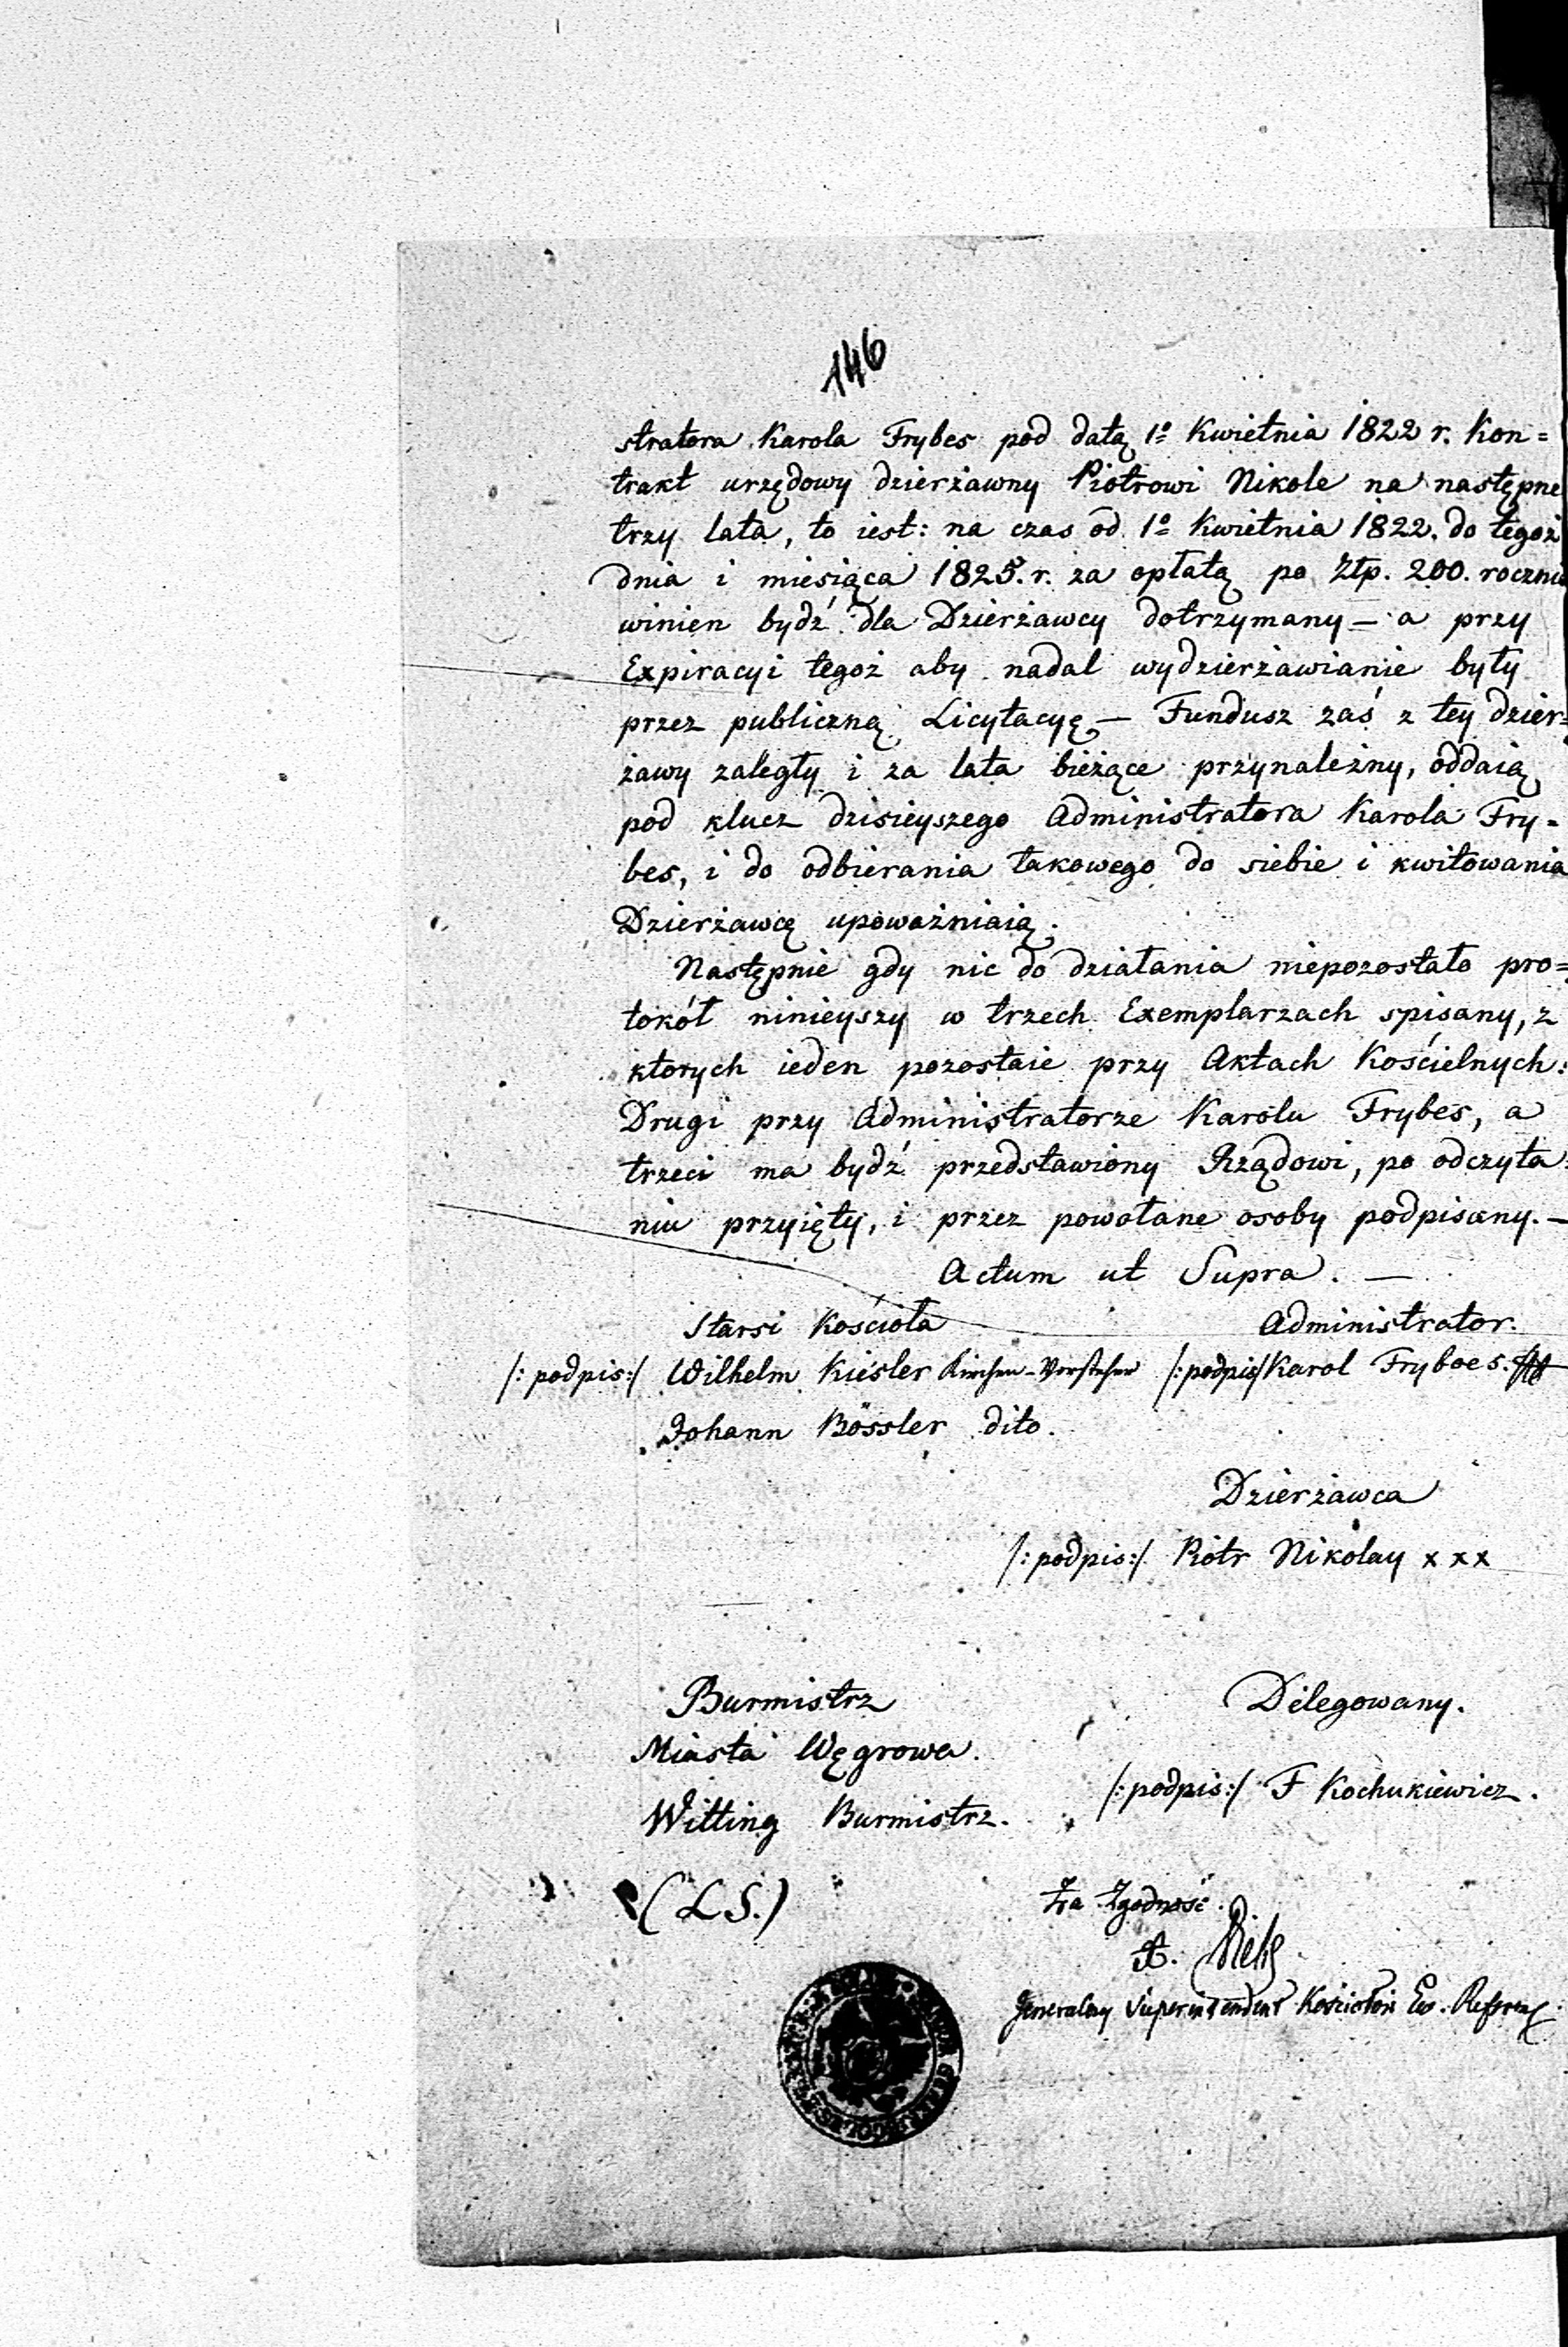 146
stratora Karola Frybes pod datą 1º Kwietnia 1822 r. Kon=
trakt urzędowy dzierżawny Piotrowi Nikole na następne
trzy lata, to iest: na czas od 1º Kwietnia 1822. do tegoż
dnia i miesiąca 1825. r. za opłatą po Złp. 200. roczni
winien bydź dla Dzierżawcy dotrzymany – a przy
Expiracyi tegoż aby nadal wydzierżawianie były
przez publiczną Licytacyę – Fundusz zaś z tey dzier=
żawy zaległy i za lata bieżące przynależny, oddaią
pod klucz dzisieyszego Administratora Karola Fry=
bes, i do odbierania takowego do siebie i kwitowania
Dzierżawcę upoważniaią.
Następnie gdy nic do działania niepozostało pro=
tokół ninieyszy w trzech Exemplarzach spisany, z
ktorych ieden pozostaie przy Aktach Kościelnych:
Drugi przy Administratorze Karolu Frybes, a
trzeci ma bydź przedstawiony Rządowi, po odczyta=
niu przyięty, i przez powołane osoby podpisany. –
Actum ut Supra. –
Starsi Kościoła Administrator.
/: podpis:/ Wilhelm Kiesler Kirchen-Vorsteher /: podpis/ Karol Fryboes.
Johann Bössler dito.
Dzierżawca
/: podpis:/ Piotr Nikolay x x x
Burmistrz Delegowany.
Miasta Węgrowa.
/: podpis:/ F Kochukiewicz.
Witting Burmistrz.
(L S.)
Za Zgodność.
Generalny Superintendent Kościołów Ew. Reform